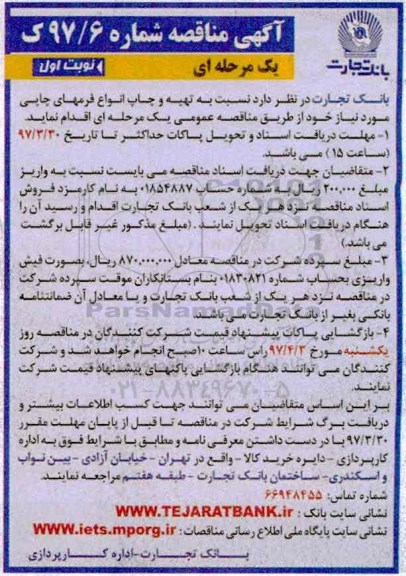 آگهی مناقصه شماره ۹۷/۶ ک
یک مرحله ای
نوبت اول
بانک تجارت
بانک تجارت در نظر دارد نسبت به تهیه و چاپ انواع فرمهای چاپی
مورد نیاز خود از طریق مناقصه عمومی یک مرحله ای اقدام نماید.
۱- مهلت دریافت اسناد و تحویل پاکات حداکثر تا تاریخ ۹۷/۳/۳۰
(ساعت ۱۵) می باشد.
۲- متقاضیان جهت دریافت اسناد مناقصه می بایست نسبت به واریز
مبلغ ۲۰۰,۰۰۰ ریال به شماره حساب ۰۱۸۵۴۸۸۷ به نام کارمزد فروش
اسناد مناقصه نزد هر یک از شعب بانک تجارت اقدام و رسید آن را
هنگام دریافت اسناد تحویل نمایند. (مبلغ مذکور غیر قابل برگشت
می باشد)
۳- مبلغ سپرده شرکت در مناقصه معادل ۸۷۰,۰۰۰,۰۰۰ ریال، بصورت فیش
واریزی بحساب شماره ۰۱۸۳۰۸۲۱ بنام بستانکاران موقت سپرده شرکت
در مناقصه نزد هر یک از شعب بانک تجارت و یا معادل آن ضمانتنامه
بانکی بغیر از بانک تجارت می باشد.
۴- بازگشایی پاکات پیشنهاد قیمت شرکت کنندگان در مناقصه روز
یکشنبه مورخ ۹۷/۴/۳ راس ساعت ۱۰ صبح انجام خواهد شد و شرکت
کنندگان می توانند هنگام بازگشایی پاکتهای پیشنهاد قیمت شرکت
نمایند.
بر این اساس متقاضیان می توانند جهت کسب اطلاعات بیشتر و
دریافت برگ شرایط شرکت در مناقصه تا قبل از پایان مهلت مقرر
۹۷/۳/۳۰ با در دست داشتن معرفی نامه و مطابق با شرایط فوق به اداره
کارپردازی - دایره خرید کالا - واقع در تهران - خیابان آزادی - بین نواب
و اسکندری- ساختمان بانک تجارت - طبقه هفتم مراجعه نمایند.
شماره تماس: ۶۶۹۴۸۴۵۵
نشانی سایت بانک : WWW.TEJARATBANK.ir
نشانی سایت پایگاه ملی اطلاع رسانی مناقصات : WWW.iets.mporg.ir
بانک تجارت-اداره کارپردازی
۰۲۱-۸۸۳۴۹۶۷۰-۵